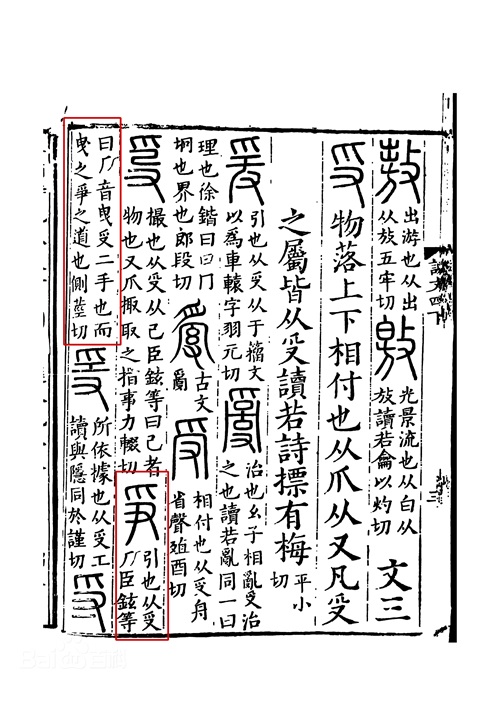 敖出游也从出从放五牢切敫光景流也从白从放讀若龠以灼切文三
𠬪物落上下相付也从爪从又凡𠬪
之屬皆从𠬪讀若詩標有梅平小切
爰引也从𠬪从于籒文以爲車轅字羽元切𤔔治也幺子相亂𠬪治之也讀若亂同一曰
理也徐鍇曰曰冂坰也界也郎段切古文𤔔受相付也从𠬪舟省聲殖酉切
撮也从𠬪从己臣鉉等曰己者物也又爪掫取之指事力輟切爭引也从𠬪𠂆臣鉉等
曰𠂆音曳𠬪二手也而曳之爭之道也側莖切𤔌所依據也从𠬪工讀與隱同於謹切
Baidu百科